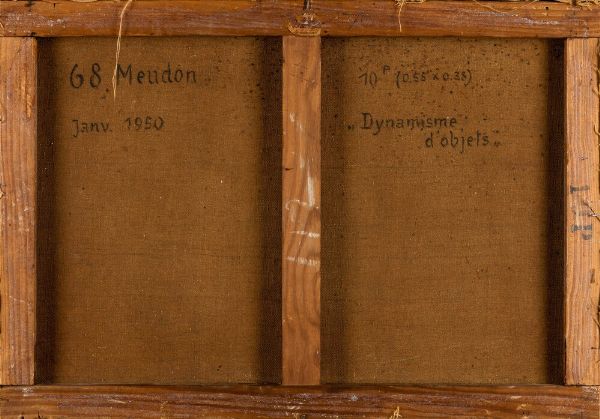 68 Meudon
Janv. 1950
10 P (0.55 x 0.38)
„Dynamisme
d'objets„